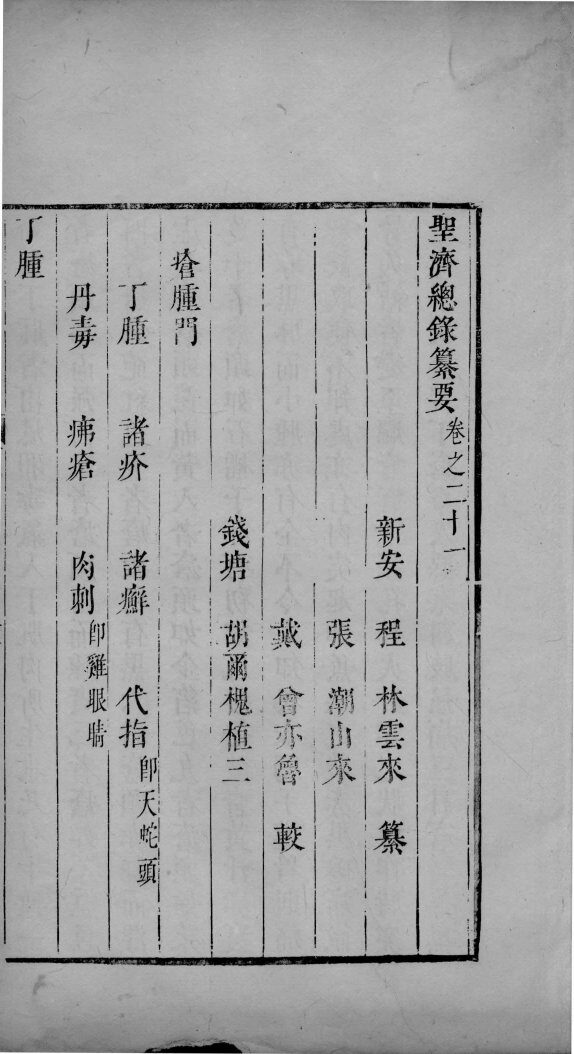 聖濟總錄纂要卷之二十一
新安 程 林雲來 纂
張 潮山來
戴 曾亦魯 較
錢塘 胡爾槐植三
瘡腫門
丁腫 諸疥 諸癬 代指卽天蛇頭
丹毒 疿瘡 肉刺卽雞眼睛
丁腫